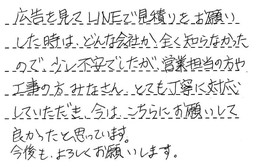 広告を見てLINEで見積りをお願い
した時は、どんな会社か全く知らなかった
ので、少し不安でしたが、営業担当の方や
工事の方、みなさん、とても丁寧に対応
していただき、今は、こちらにお願いして
良かったと思っています。
今後も、よろしくお願いします。